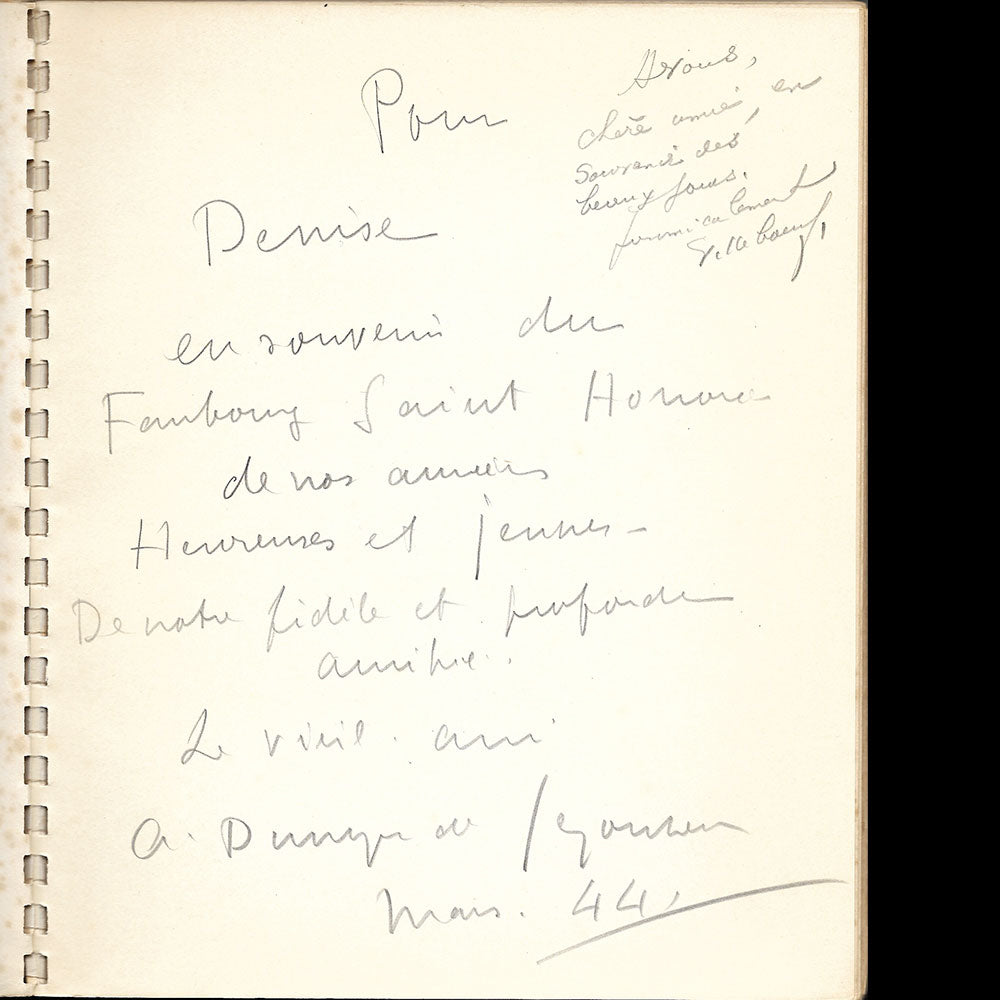 Pour
Denise
en souvenir du
Faubourg Saint Honoré
de nos années
Heureuses et jeunes –
De notre fidèle et profonde
amitié.
Le vieil ami
A. Dunoyer de Segonzac
Mars. 44.
A vous,
chère amie, en
souvenir des
beaux jours.